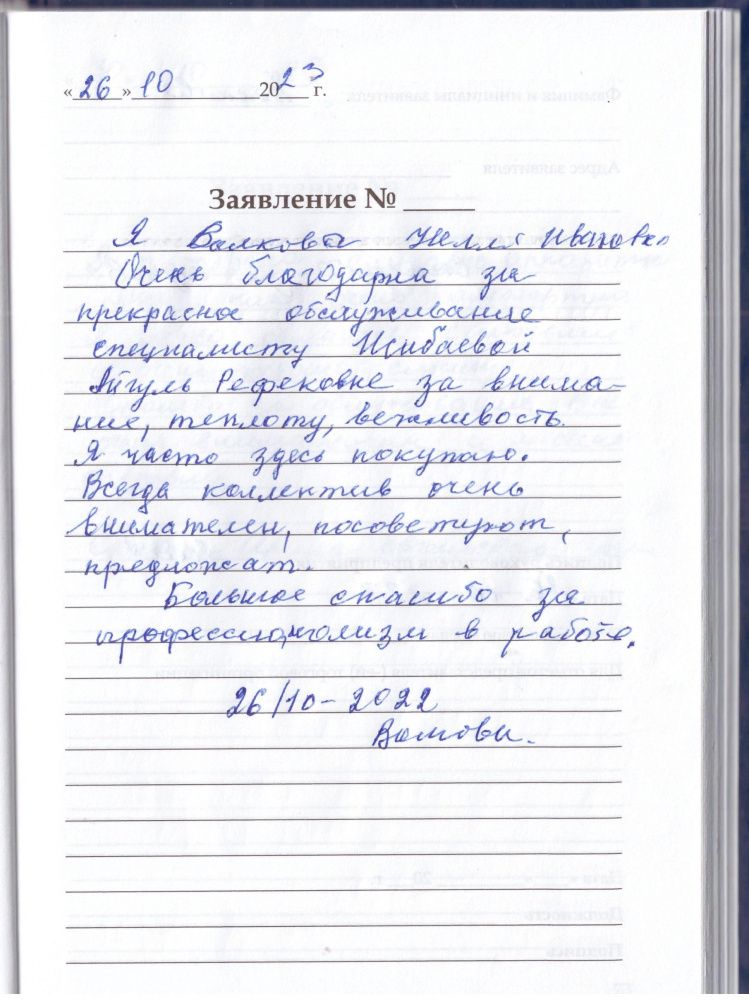 «26» 10 2023 г.
Заявление №
Я Валкова Нелля Ивановна
Очень благодарна за
прекрасное обслуживание
специалисту Ишбаевой
Айгуль Рефековне за внима-
ние, теплоту, вежливость.
Я часто здесь покупаю.
Всегда коллектив очень
внимателен, посоветуют,
предложат.
Большое спасибо за
профессионализм в работе.
26/10-2022